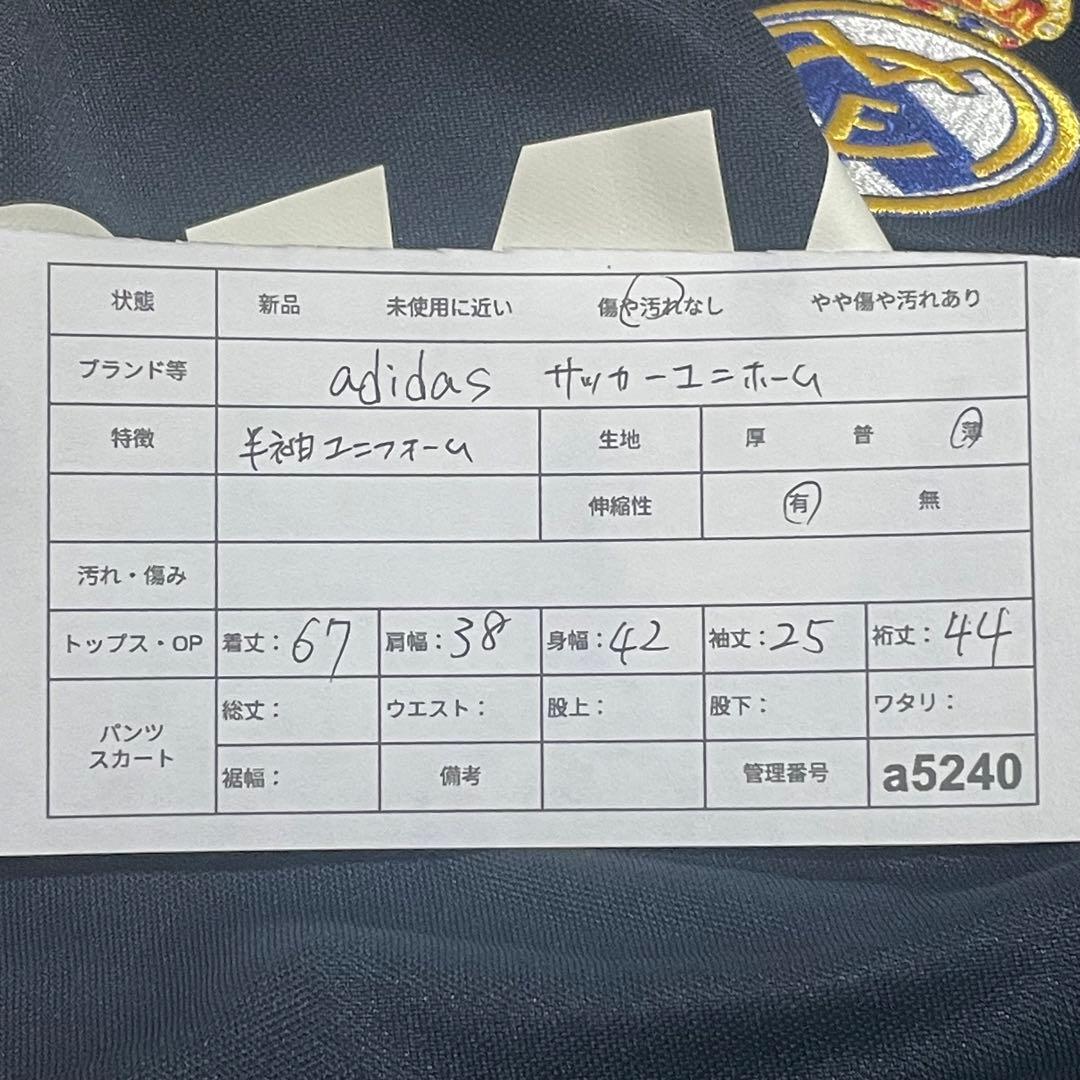 状態 新品 未使用に近い 傷や汚れなし やや傷や汚れあり
ブランド等 adidas サッカーユニホーム
特徴 半袖ユニフォーム 生地 厚 普 薄
伸縮性 有 無
汚れ・傷み
トップス・OP 着丈:67 肩幅:38 身幅:42 袖丈:25 裄丈:44
パンツ スカート 総丈: ウエスト: 股上: 股下: ワタリ:
裾幅: 備考 管理番号 a5240